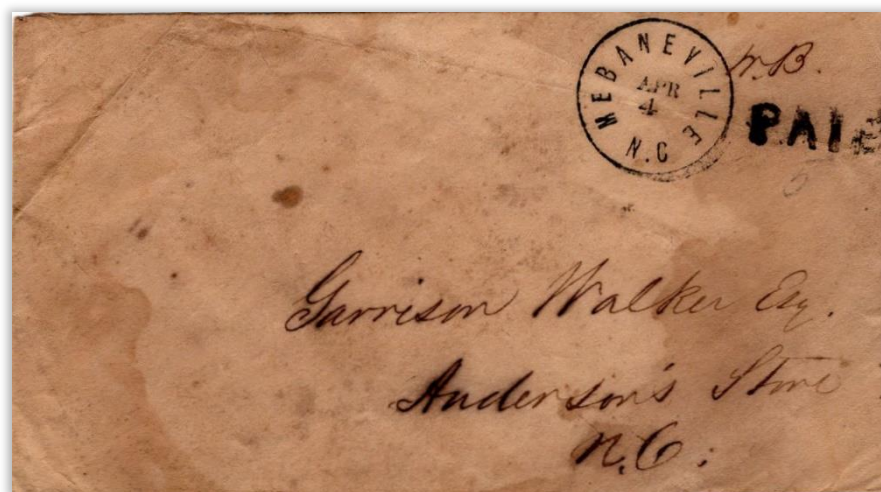 MEBANEVILLE
APR
4
N.C
W.B.
PAID
5
Garrison Walker Esq.
Anderson's Store
N.C.